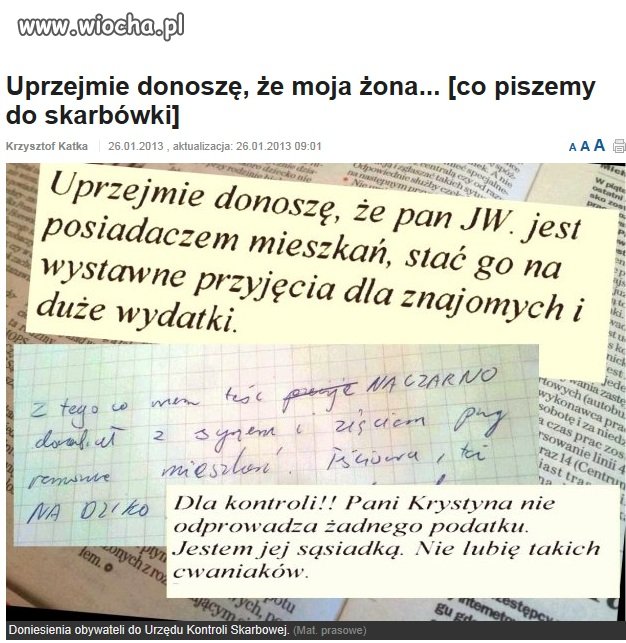 www.wiocha.pl
Uprzejmie donoszę, że moja żona... [co piszemy
do skarbówki]
Krzysztof Katka 26.01.2013 , aktualizacja: 26.01.2013 09:01
A A A
Uprzejmie donoszę, że pan JW. jest
posiadaczem mieszkań, stać go na
wystawne przyjęcia dla znajomych i
duże wydatki.
Z tego co wiem teść NA CZARNO
z synem i zięciem przy
remoncie mieszkań. Teściowa też
NA DZIKO
Dla kontroli!! Pani Krystyna nie
odprowadza żadnego podatku.
Jestem jej sąsiadką. Nie lubię takich
cwaniaków.
Doniesienia obywateli do Urzędu Kontroli Skarbowej. (Mat. prasowe)